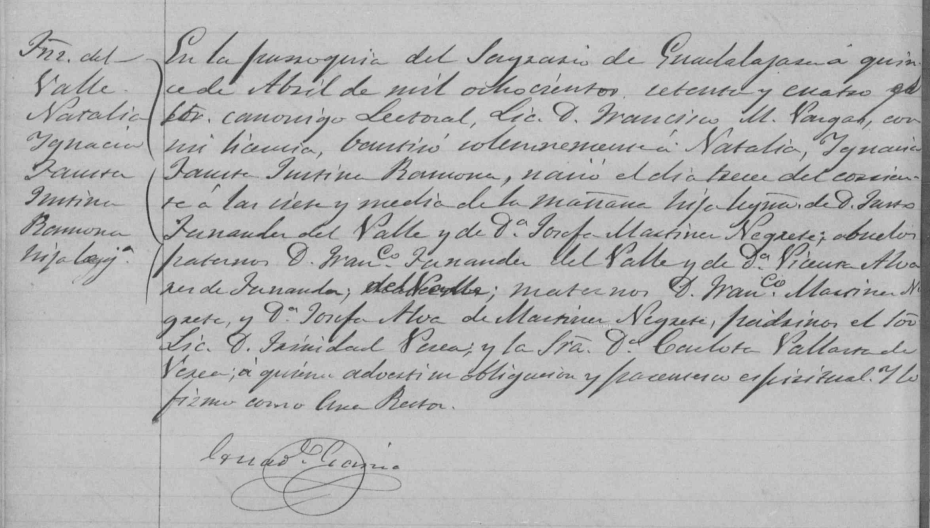 Frz. del
Valle
Natalia
Ygnacia
Fausta
Justina
Ramona
hija legª
En la parroquia del Sagrario de Guadalajara á quin
ce de Abril de mil ochocientos setenta y cuatro el
Sor. canonigo Lectoral, Lic. D. Francisco M. Vargas, con
mi licencia, bautisó solemnemente á Natalia, Ygnacia
Fausta Justina Ramona, nació el dia trece del corrien-
te á las siete y media de la mañana hija legma. de D. Justo
Fernandez del Valle y de Dª Josefa Martinez Negrete; abuelos
paternos D. Franco. Fernandez del Valle y de Dª Vicenta Alva
rez de Fernandez; del Valle; maternos D. Franco. Martinez Ne
grete, y Dª Josefa Alva de Martinez Negrete, padrinos el Sor
Lic. D. Trinidad Verea, y la Sra. Dª Carlota Vallarta de
Verea; a quienes advertí su obligacion y parentesco espiritual. Y lo
firmo como Cura Rector.